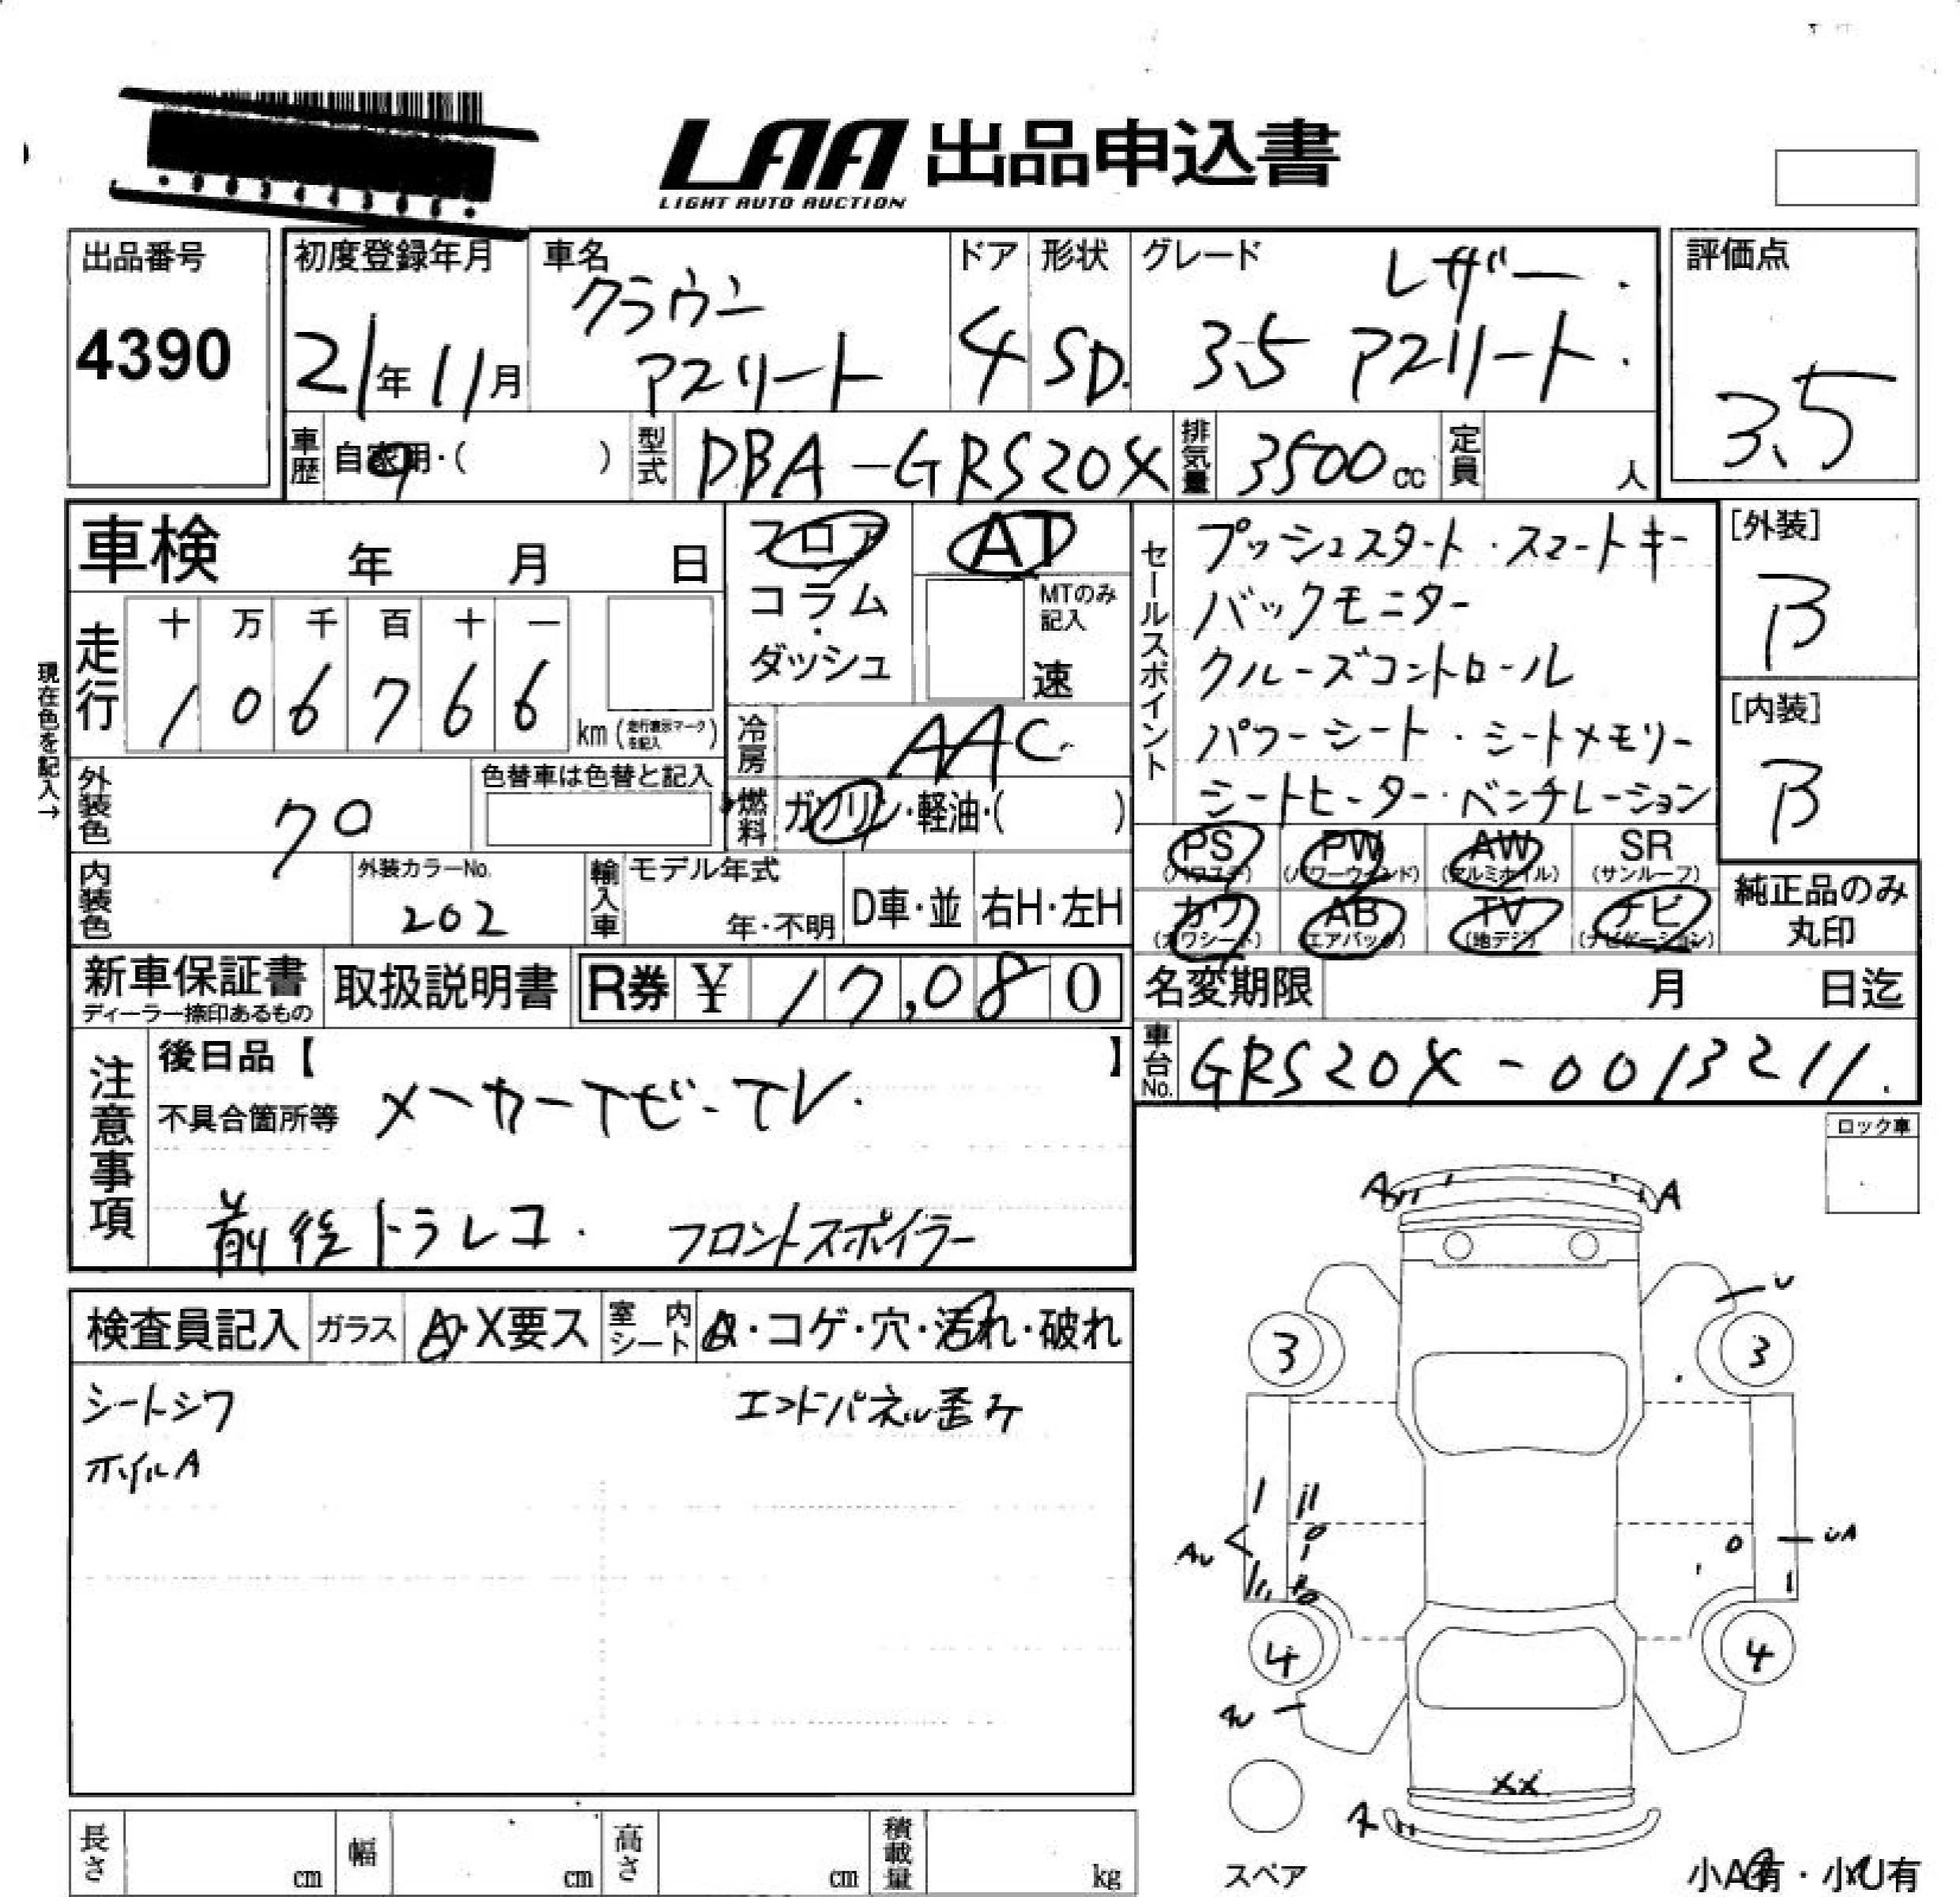 LAA 出品申込書
LIGHT AUTO AUCTION
出品番号
4390
初度登録年月
21年11月
車名
クラウン
アスリート
ドア
4
形状
SD.
グレード
レザー.
3.5 アスリート.
評価点
3.5
車歴 自家用・( )
型式 DBA-GRS20X
排気量 3500cc
定員 人
車検 年 月 日
フロア
コラム
・
ダッシュ
AT
MTのみ
記入
速
セールスポイント
プッシュスタート・スマートキー
バックモニター
クルーズコントロール
パワーシート・シートメモリー
シートヒーター・ベンチレーション
[外装]
B
[内装]
B
現在色を記入→
走行
十 万 千 百 十 一
1 0 6 7 6 6
km (走行表示マークを記入)
冷房 AAC
燃料 ガソリン・軽油・( )
外装色 クロ
色替車は色替と記入
内装色
外装カラーNo.
202
輸入車 モデル年式
年・不明
D車・並
右H・左H
PS (パワステ)
PW (パワーウィンド)
AW (アルミホイル)
SR (サンルーフ)
カワ (カワシート)
AB (エアバック)
TV (地デジ)
ナビ (ナビゲーション)
純正品のみ
丸印
新車保証書
ディーラー捺印あるもの
取扱説明書
R券 ¥ 17,080
名変期限 月 日迄
車台No. GRS20X-0013211.
注意事項
後日品【 】
不具合箇所等
メーカーナビ-TV.
前後ドラレコ. フロントスポイラー
ロック車
検査員記入
ガラス A・X要ス
室内シート ・コゲ・穴・汚れ・破れ
シートシワ
エンドパネル歪み
ホイルA
A A
U
3 3
AU
UA
4 4
XX
A
スペア
小A有・小U有
長さ cm
幅 cm
高さ cm
積載量 kg